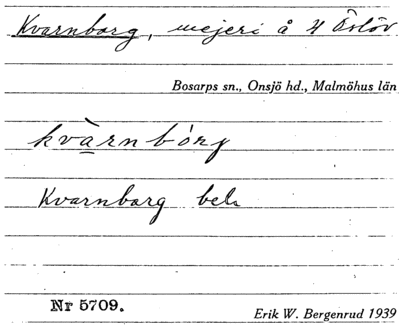 Kvarnborg, mejeri å 4 Östöv
Bosarps sn., Onsjö hd., Malmöhus län
kvàrnbórj
Kvarnborg bel.
Nr 5709.
Erik W. Bergenrud 1939